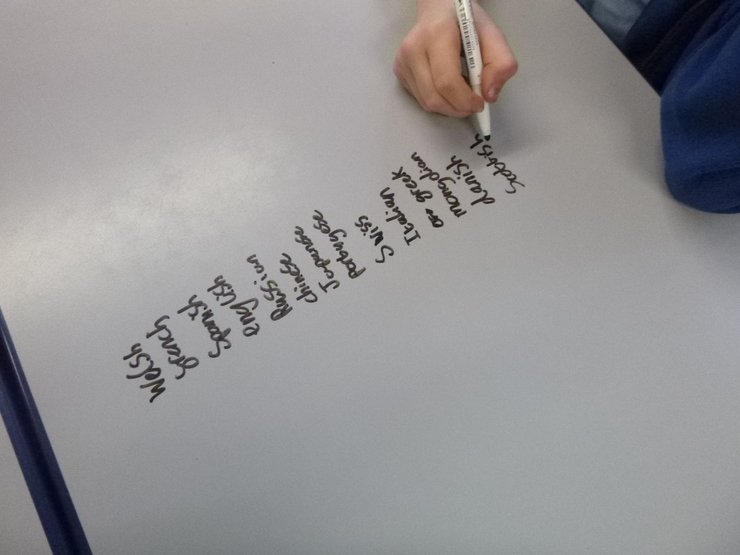 Welsh
french
Spanish
english
Russian
chinese
Japanese
Portugese
Swiss
Italian
greek
mongolian
danish
Scottish